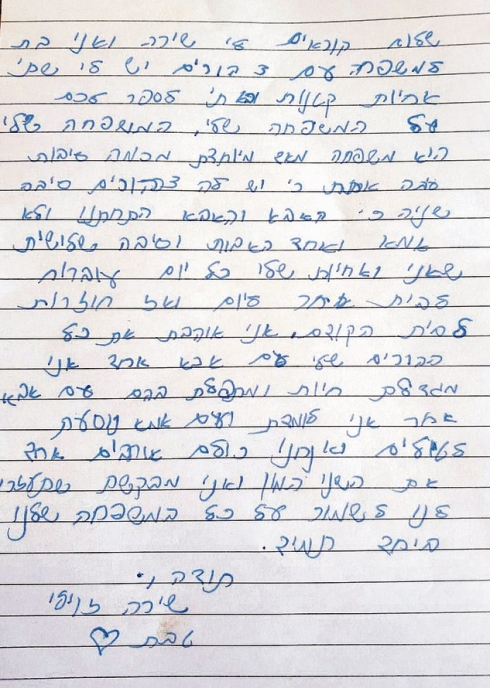 שלום קוראים לי שירה ואני בת
למשפחה עם 3 הורים יש לי שתי
אחיות קטנות ובאתי לספר לכם
על המשפחה שלי, המשפחה שלי
היא משפחה מאוד מיוחדת מכמה סיבות
אחת כי יש לה 3 הורים סיבה
שניה כי האבא והאבא התחתנו ולא
אמא ואחד האבות וסיבה שלישית
שאני ואחיות שלי כל יום עוברות
לבית אחר ליום ואז חוזרות
לבית הקודם. אני אוהבת את כל
ההורים שלי עם אבא אחד אני
מגדלת חיות ומטפלת בהם עם אבא
אחר אני לומדת ועם אמא נוסעת
לטיולים ואנחנו כולם אוהבים אחד
את השני המון ואני מבקשת שתעזרו
לנו לשמור על כל המשפחה שלנו
ביחד תמיד.
תודה,
שירה